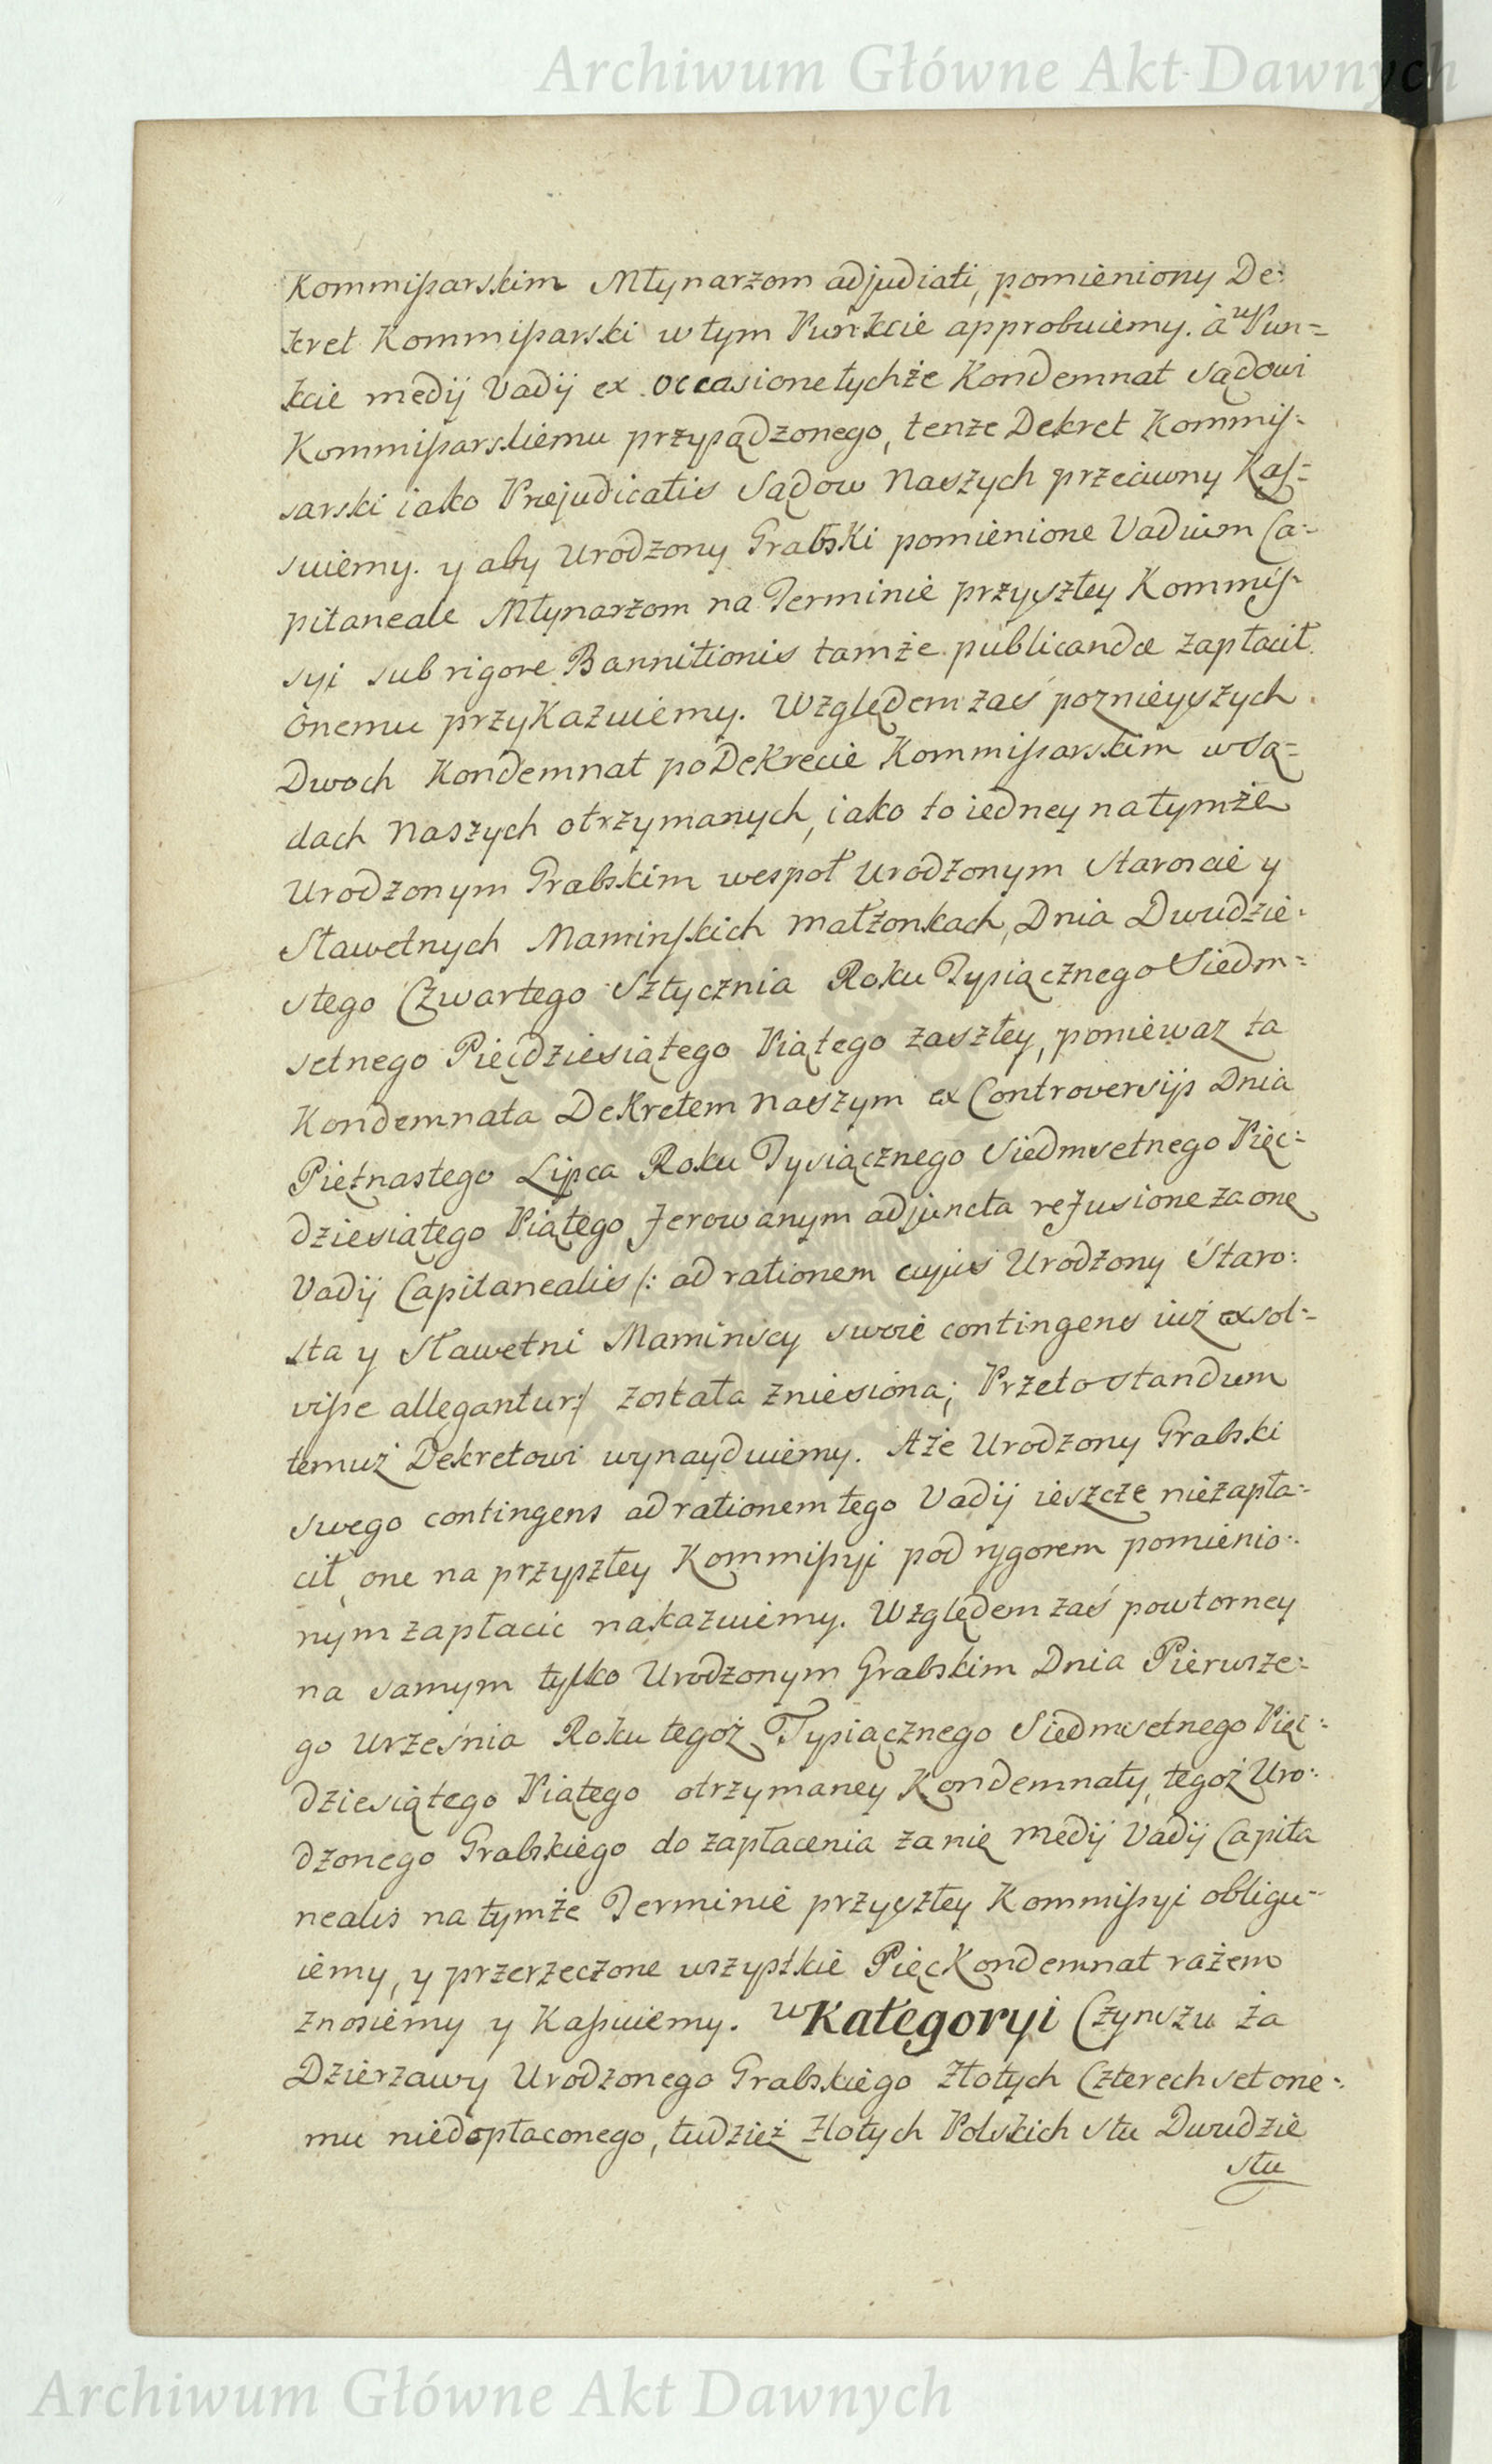 Archiwum Główne Akt Dawnych
Kommißarskim Młynarzom adjudiati, pomieniony De:
kret Kommißarski w tym Punkcie approbuiemy. à w Pun=
kcie medij Vadij ex occasione tychże Kondemnat Sądowi
Kommißarskiemu przysądzonego, tenże Dekret Kommis=
sarski iako Præjudicatis Sądow Naszych przeciwny Kas=
suiemy. y aby Urodzony Grabski pomienione Vadium Ca=
pitaneale Młynarzom na Terminie przyszłey Kommis=
syi sub rigore Bannitionis tamże publicandæ zapłacił
onemu przykazuiemy. Względem zaś poznieyszych
Dwoch Kondemnat po Dekrecie Kommißarskim w Są=
dach Naszych otrzymanych, iako to iedney na tymże
Urodzonym Grabskim wespoł Urodzonym Staroscie y
Sławetnych Maminskich małżonkach, Dnia Dwudzie=
stego Czwartego Sztycznia Roku Tysiącznego Siedm=
setnego Pięcdziesiątego Piątego zaszłey, poniewaz ta
Kondemnata Dekretem Naszym ex Controversijs Dnia
Piętnastego Lipca Roku Tysiącznego Siedmsetnego Pięc=
dziesiątego Piątego ferowanym adjuncta refusione za onę
Vadij Capitanealis /: ad rationem cujus Urodzony Staro:
sta y Sławetni Maminscy swoie contingens iuż exsol=
viße allegantur :/ została zniesiona; Przeto standum
temuż Dekretowi wynayduiemy. A że Urodzony Grabski
swego contingens ad rationem tego Vadij ieszcze niezapła=
cił, one na przyszłey Kommißyi pod rygorem pomienio=
nym zapłacic nakazuiemy. Względem zaś powtorney
na samym tylko Urodzonym Grabskim Dnia Pierwsze=
go Września Roku tegoż Tysiącznego Siedmsetnego Pięc=
dziesiątego Piątego otrzymaney Kondemnaty, tegoż Uro=
dzonego Grabskiego do zapłacenia za nię medij Vadij Capita
nealis na tymże Terminie przyszłey Kommißyi obligu=
iemy, y przerzeczone wszystkie Pięc Kondemnat rażem
znosiemy y Kaßuiemy. w Kategoryi Czynszu za
Dzierzawy Urodzonego Grabskiego Złotych Czterechset one=
mu niedopłaconego, tudzież Złotych Polskich stu Dwudzie
stu
Archiwum Główne Akt Dawnych